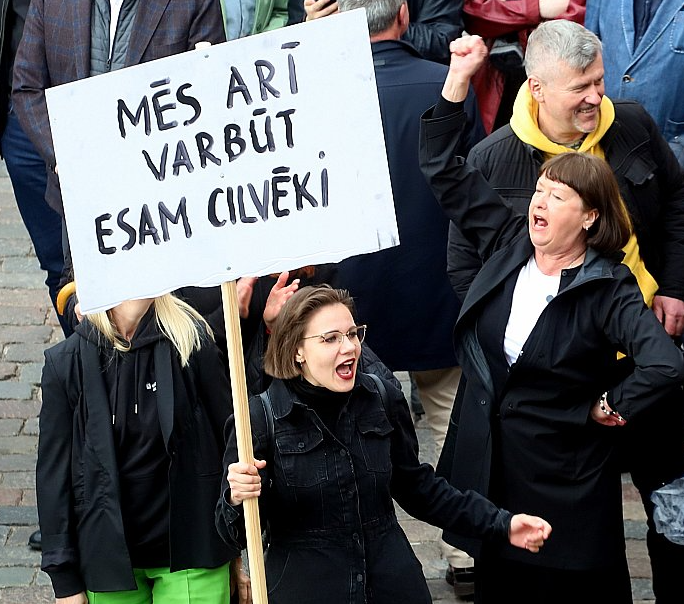 MĒS ARĪ
VARBŪT
ESAM CILVĒKI